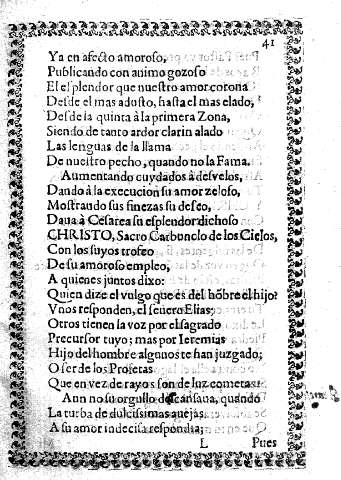 41
Ya en afecto amoroso,
Publicando con animo gozoso
El esplendor que nuestro amor corona
Desde el mas adusto, hasta el mas elado,
Desde la quinta à la primera Zona,
Siendo de tanto ardor clarin alado
Las lenguas de la llama
De nuestro pecho, quando no la Fama.
Aumentando cuydados à desvelos,
Dando à la execucion su amor zeloso,
Mostrando sus finezas su deseo,
Daua à Cesarea su esplendor dichoso
CHRISTO, Sacro Carbonclo de los Cielos,
Con los suyos trofeo
De su amoroso empleo,
A quienes juntos dixo:
Quien dize el vulgo que es del hõbre el hijo?
Vnos responden, el seuero Elias;
Otros tienen la voz por el sagrado
Precursor tuyo; mas por Ieremias
Hijo del hombre algunos te han juzgado;
O ser de los Profetas
Que en vez de rayos son de luz cometas
Aun no su orgullo descansaua, quando
La turba de dulcissimas auejas
A su amor indecisa respondia;
L Pues